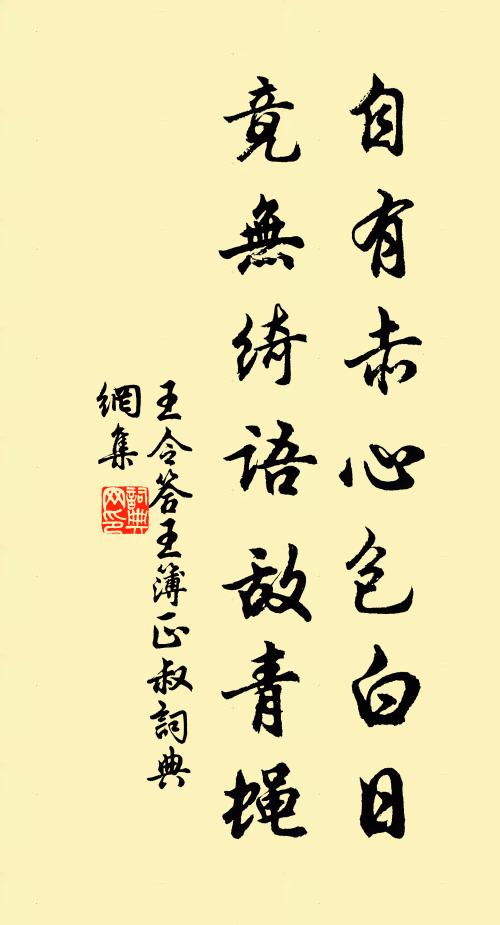 自有赤心包白日
竟無綺語敌青蝇
王令答王簿正叔詞典
網集
詞典
网印